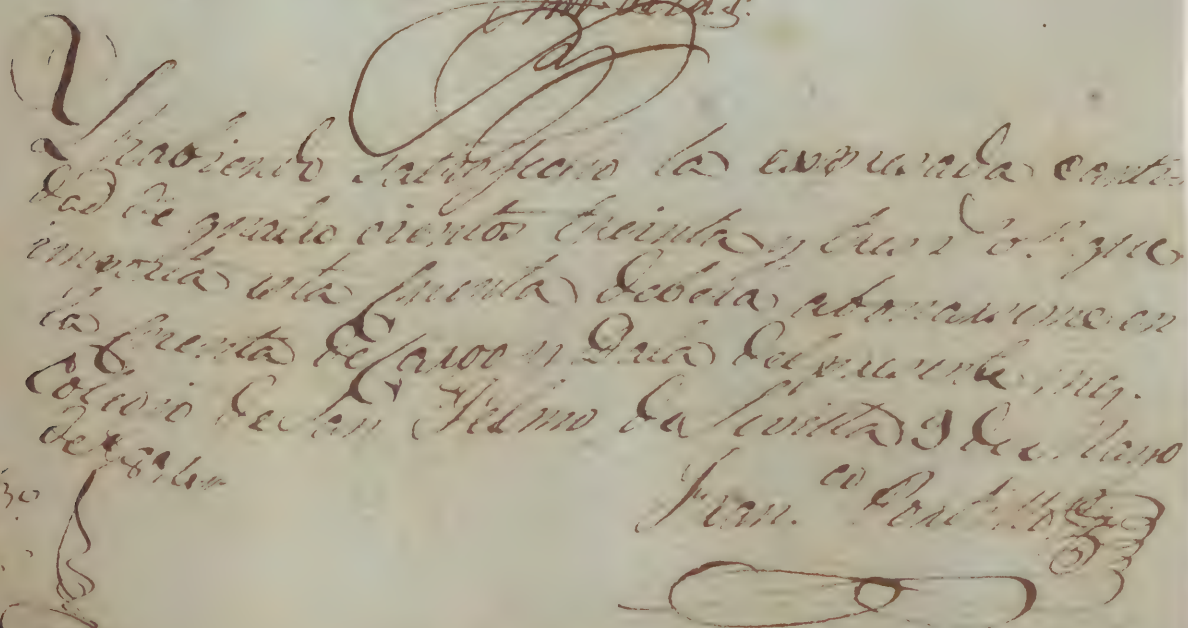 Y haviendo satisfecho la expresada canti
dad de quatro cientos treinta y tres r.s v.n que
importa esta Cuenta devera abonarseme en
la Cuenta de Cargo y Data del presente mes.
Colegio de San Telmo de Sevilla 9 de Mayo
de
Fran.co